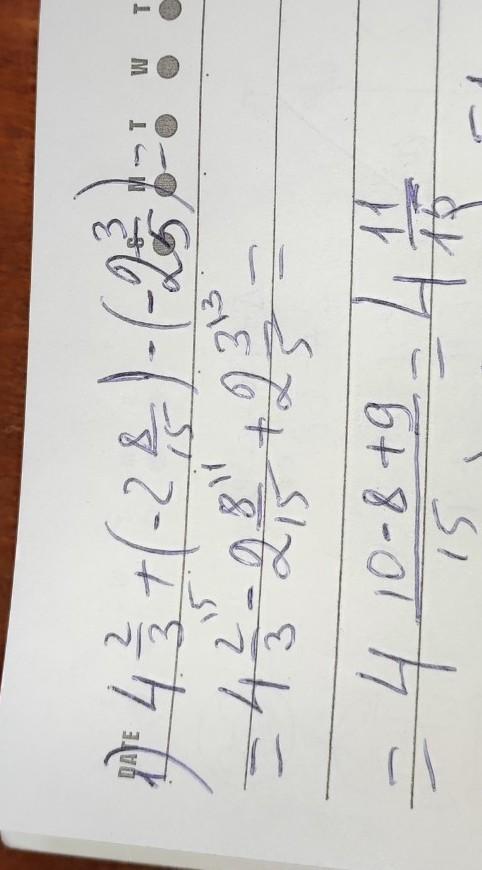 DATE S M T W T
1) 4 2/3 + (-2 8/15) - (-2 3/5) =
= 4 2/3 ⁵ - 2 8/15 ¹ + 2 3/5 ³ =
= 4 (10 - 8 + 9)/15 = 4 11/15